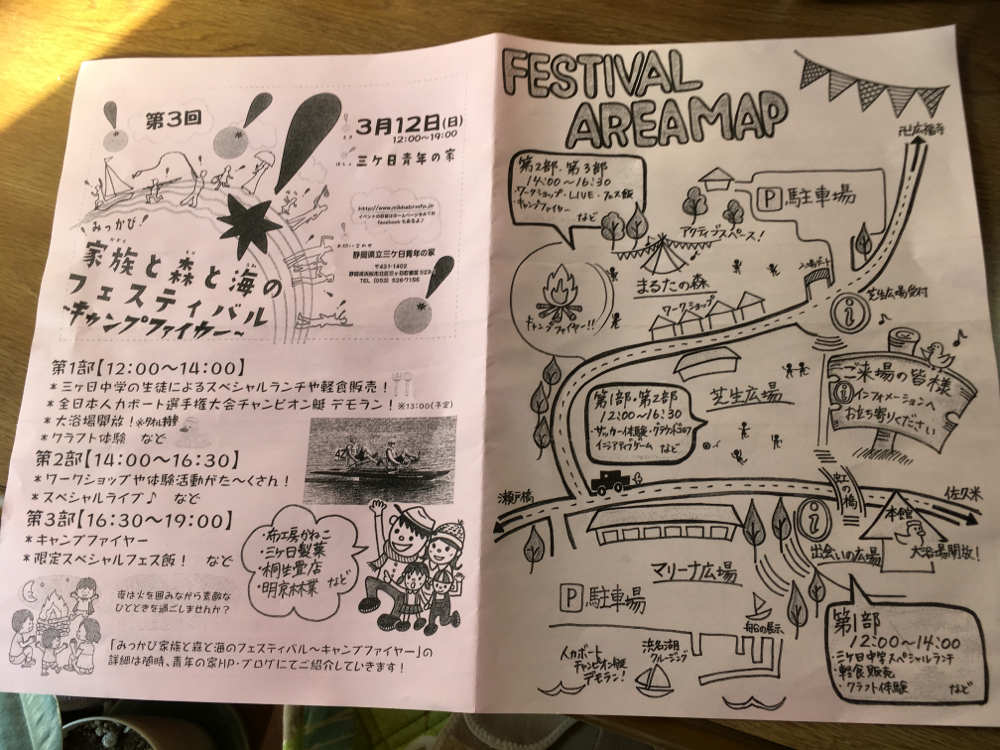 第3回
3月12日(日)
12:00〜19:00
三ケ日青年の家
http://www.mikkabi-nsfp.jp
イベントの詳細はホームページをみてね
facebookもあるよ♪
お問い合わせ
静岡県立三ケ日青年の家
〒431-1402
TEL (053) 526-7156
みっかび!
家族と森と海の
フェスティバル
〜キャンプファイヤー〜
第1部【12:00〜14:00】
*三ケ日中学の生徒によるスペシャルランチや軽食販売！
*全日本人力ボート選手権大会チャンピオン艇 デモラン！※13:00(予定)
*大浴場開放！※タオル持参
*クラフト体験 など
第2部【14:00〜16:30】
*ワークショップや体験活動がた〜くさん！
*スペシャルライブ♪ など
第3部【16:30〜19:00】
*キャンプファイヤー
*限定スペシャルフェス飯！ など
・布工房かねこ
・三ケ日製菓
・桐生畳店
・明京林業 など
夜は火を囲みながら素敵な
ひとときを過ごしませんか？
「みっかび家族と森と海のフェスティバル〜キャンプファイヤー」の
詳細は随時、青年の家HP・ブログにてご紹介していきます！
FESTIVAL
AREAMAP
卍広福寺
第2部・第3部
14:00〜16:30
・ワークショップ・LIVE・フェス飯
・キャンプファイヤー
など
P 駐車場
アクティブスペース！
まるたの森
入場ゲート
芝生広場受付
キャンプファイヤー!!
ワークショップ
ご来場の皆様
インフォメーションへ
お立ち寄りください
芝生広場
第1部・第2部
12:00〜16:30
・サッカー体験・グラウンドゴルフ
イニシアティブゲーム など
瀬戸橋
虹の橋
佐久米
本館
出会いの広場
大浴場開放！
マリーナ広場
P 駐車場
船の展示
人力ボート
チャンピオン艇
デモラン！
浜名湖
クルージング
第1部
12:00〜14:00
・三ケ日中学スペシャルランチ
・軽食販売
・クラフト体験 など